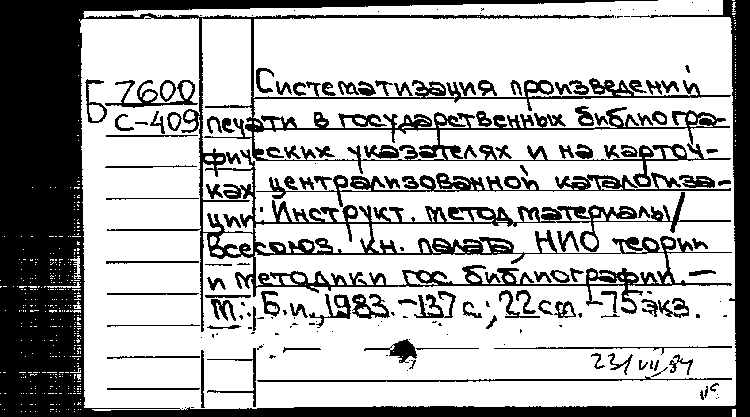 Б 7600
С-409
Систематизация произведений
печати в государственных библиогра-
фических указателях и на карточ-
ках централизованной каталогиза-
ции: Инструкт. метод. материалы /
Всесоюз. кн. палата, НИО теории
и методики гос. библиографии. —
М.: Б. и., 1983. - 137 с.; 22 см. - 75 экз.
23/VII 84